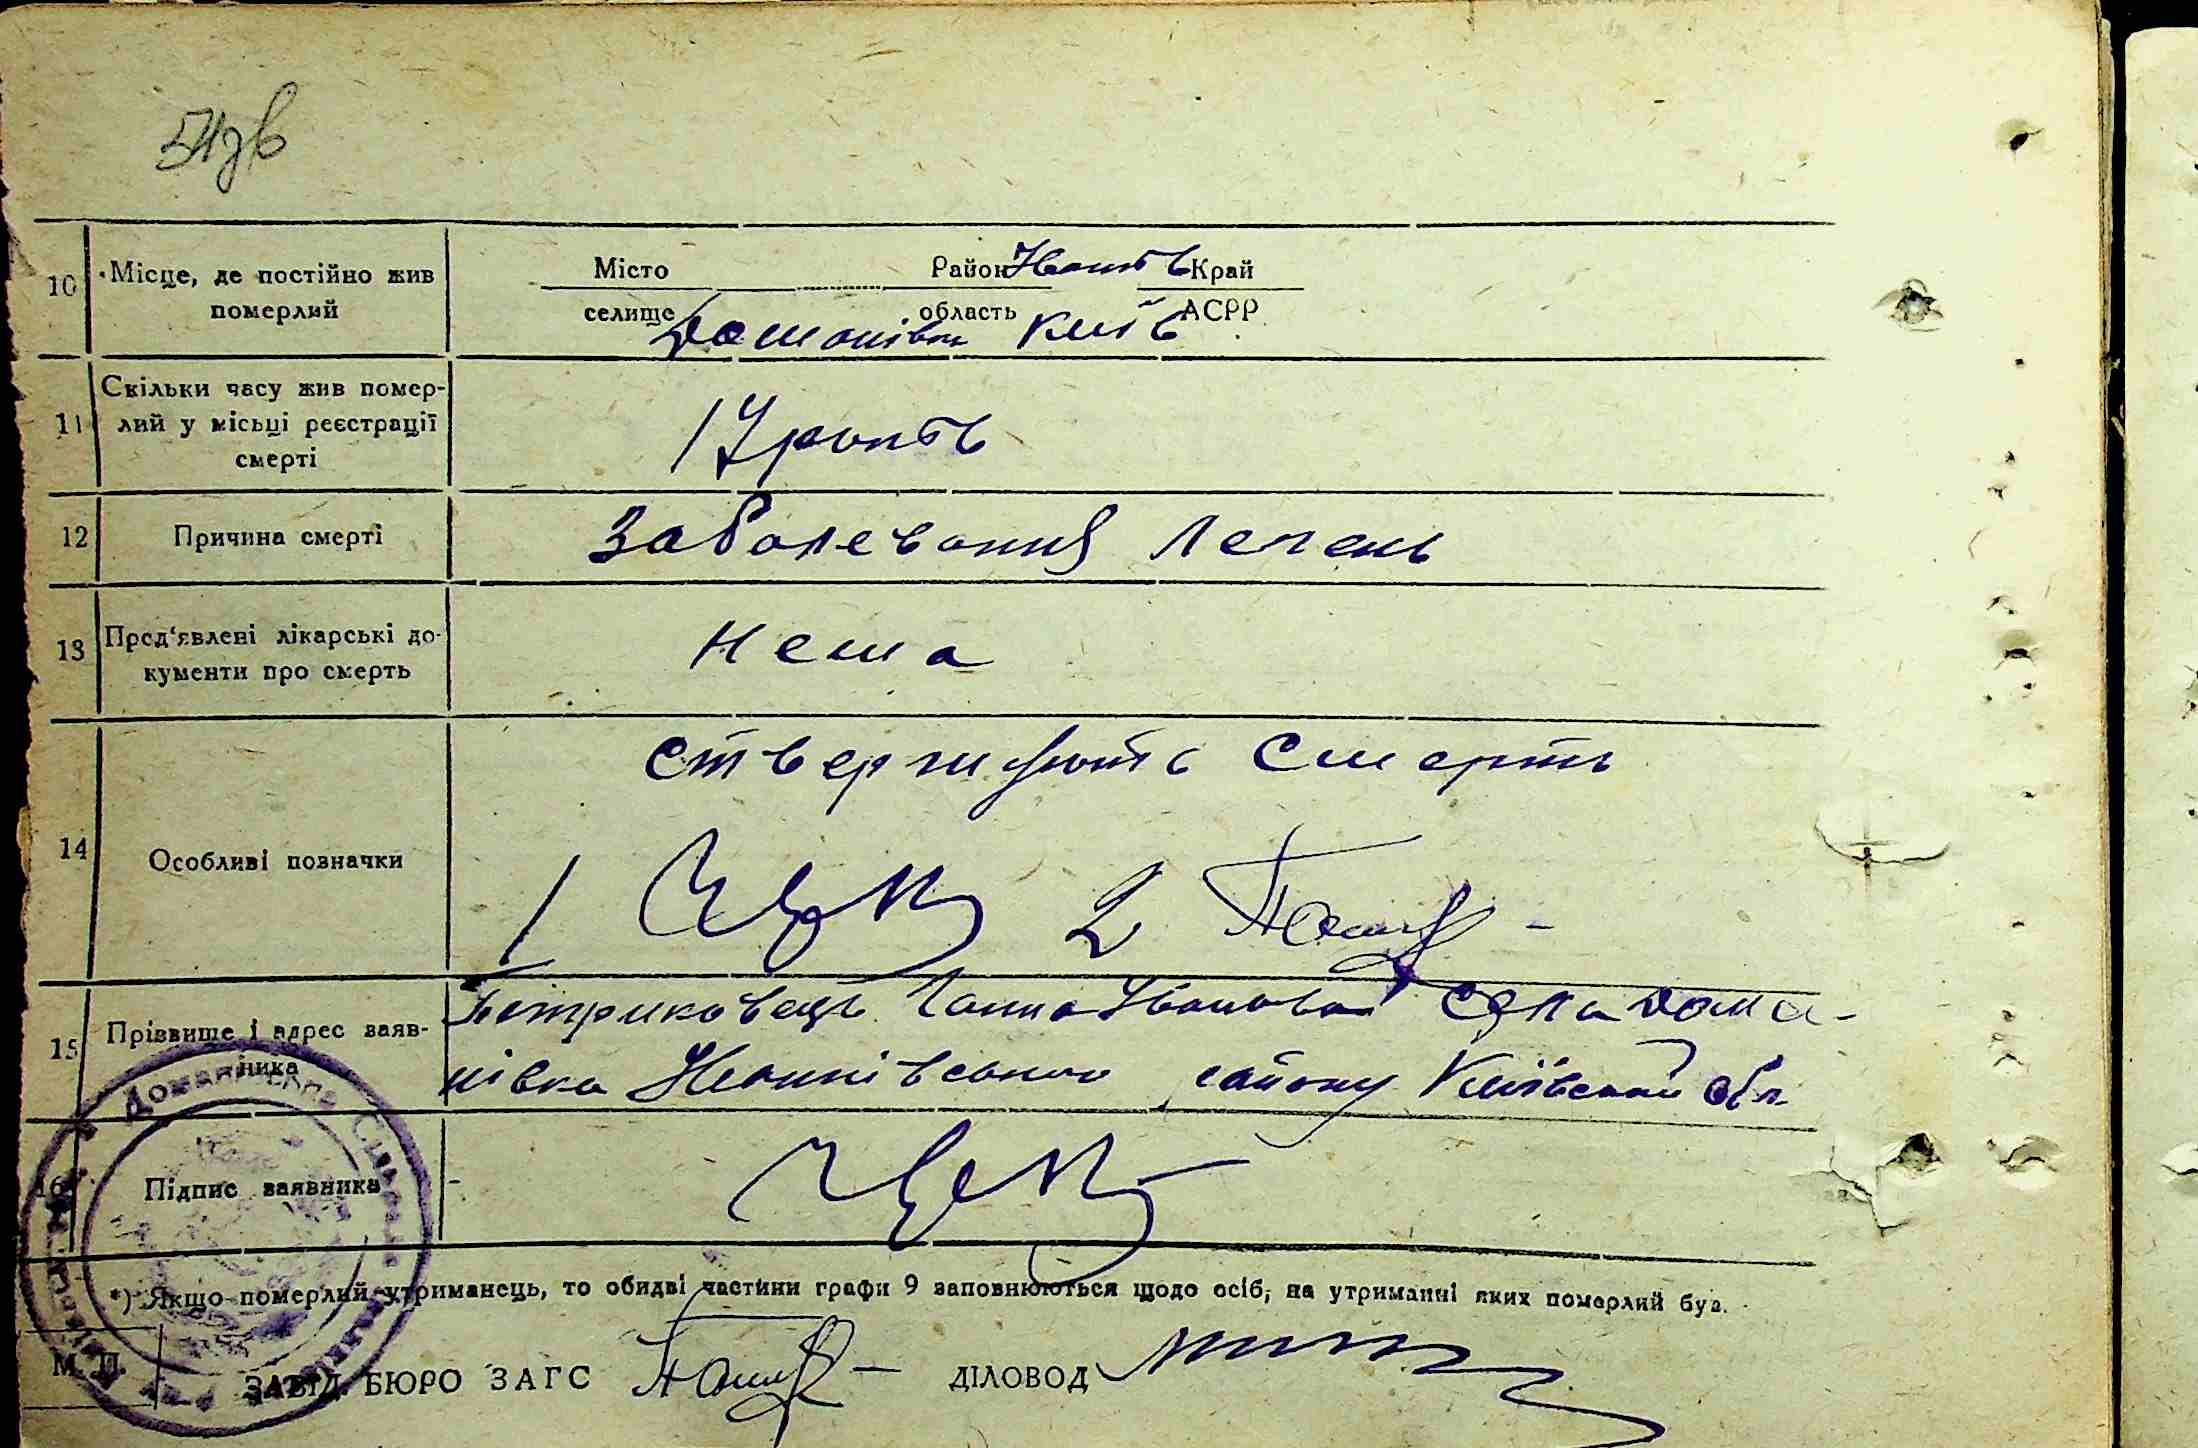 51 зв
10
Місце, де постійно жив
померлий
Місто Район Іванків Край
селище область АСРР
Доманівка Київ
11
Скільки часу жив помер-
лий у місьці реєстрації
смерті
17 років
12
Причина смерті
Заболевания Легень
13
Пред'явлені лікарські до-
кументи про смерть
Нема
14
Особливі позначки
ствержують смерть
1 2
15
Прізвище і адрес заяв-
ника
Петриковець Ганна Іванова Села Дома-
нівка Іванківського району Київської обл
16
Підпис заявника
*) Якщо померлий утриманець, то обидві частини графи 9 заповнюються щодо осіб, на утриманні яких померлий був.
М. П.
ЗАВІД. БЮРО ЗАГС ДІЛОВОД